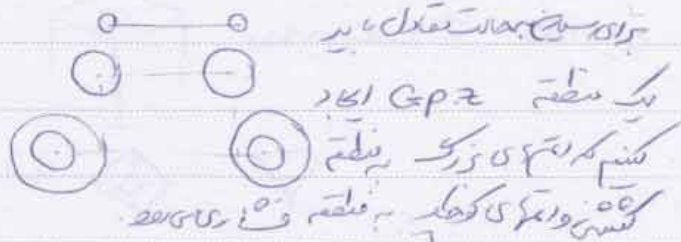 برای رسیدن بحالت تعادل باید
یک منطقه G.P.Z ایجاد
کنیم که اتمهای بزرگ به منطقه
کششی و اتمهای کوچک به منطقه فشاری می‌رود.